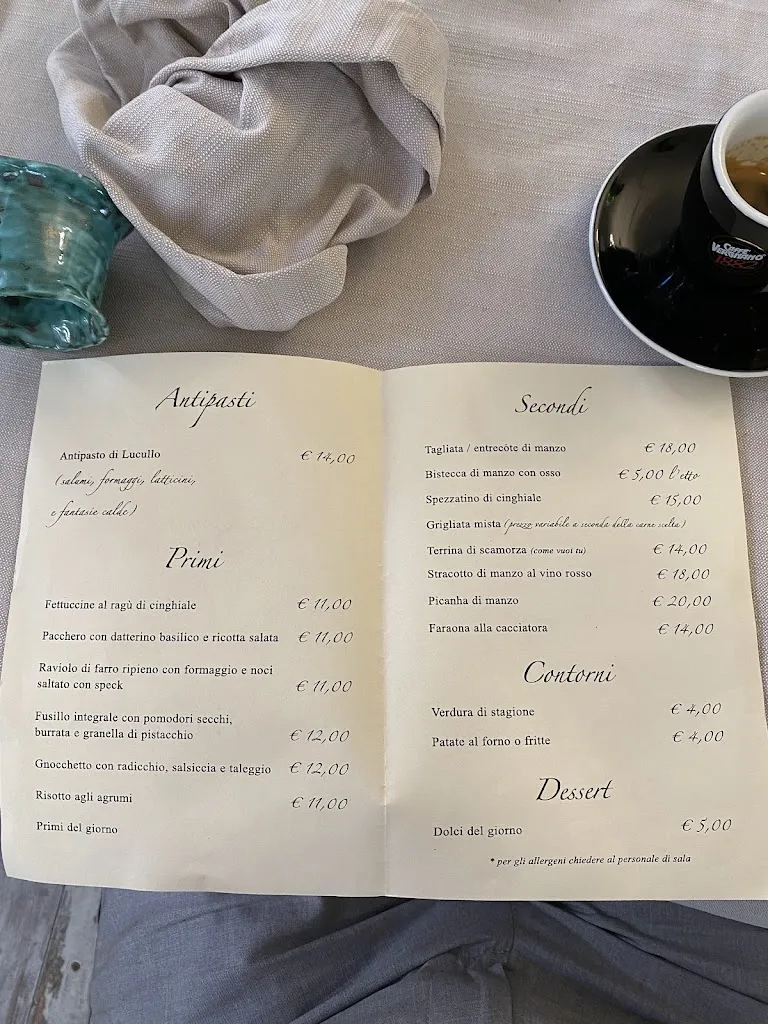 Caffè
Vergnano
1882
Antipasti
Antipasto di Lucullo € 14,00
(salumi, formaggi, latticini,
e fantasie calde)
Primi
Fettuccine al ragù di cinghiale € 11,00
Pacchero con datterino basilico e ricotta salata € 11,00
Raviolo di farro ripieno con formaggio e noci
saltato con speck € 11,00
Fusillo integrale con pomodori secchi,
burrata e granella di pistacchio € 12,00
Gnocchetto con radicchio, salsiccia e taleggio € 12,00
Risotto agli agrumi € 11,00
Primi del giorno
Secondi
Tagliata / entrecôte di manzo € 18,00
Bistecca di manzo con osso € 5,00 l'etto
Spezzatino di cinghiale € 15,00
Grigliata mista (prezzo variabile a seconda della carne scelta)
Terrina di scamorza (come vuoi tu) € 14,00
Stracotto di manzo al vino rosso € 18,00
Picanha di manzo € 20,00
Faraona alla cacciatora € 14,00
Contorni
Verdura di stagione € 4,00
Patate al forno o fritte € 4,00
Dessert
Dolci del giorno € 5,00
* per gli allergeni chiedere al personale di sala